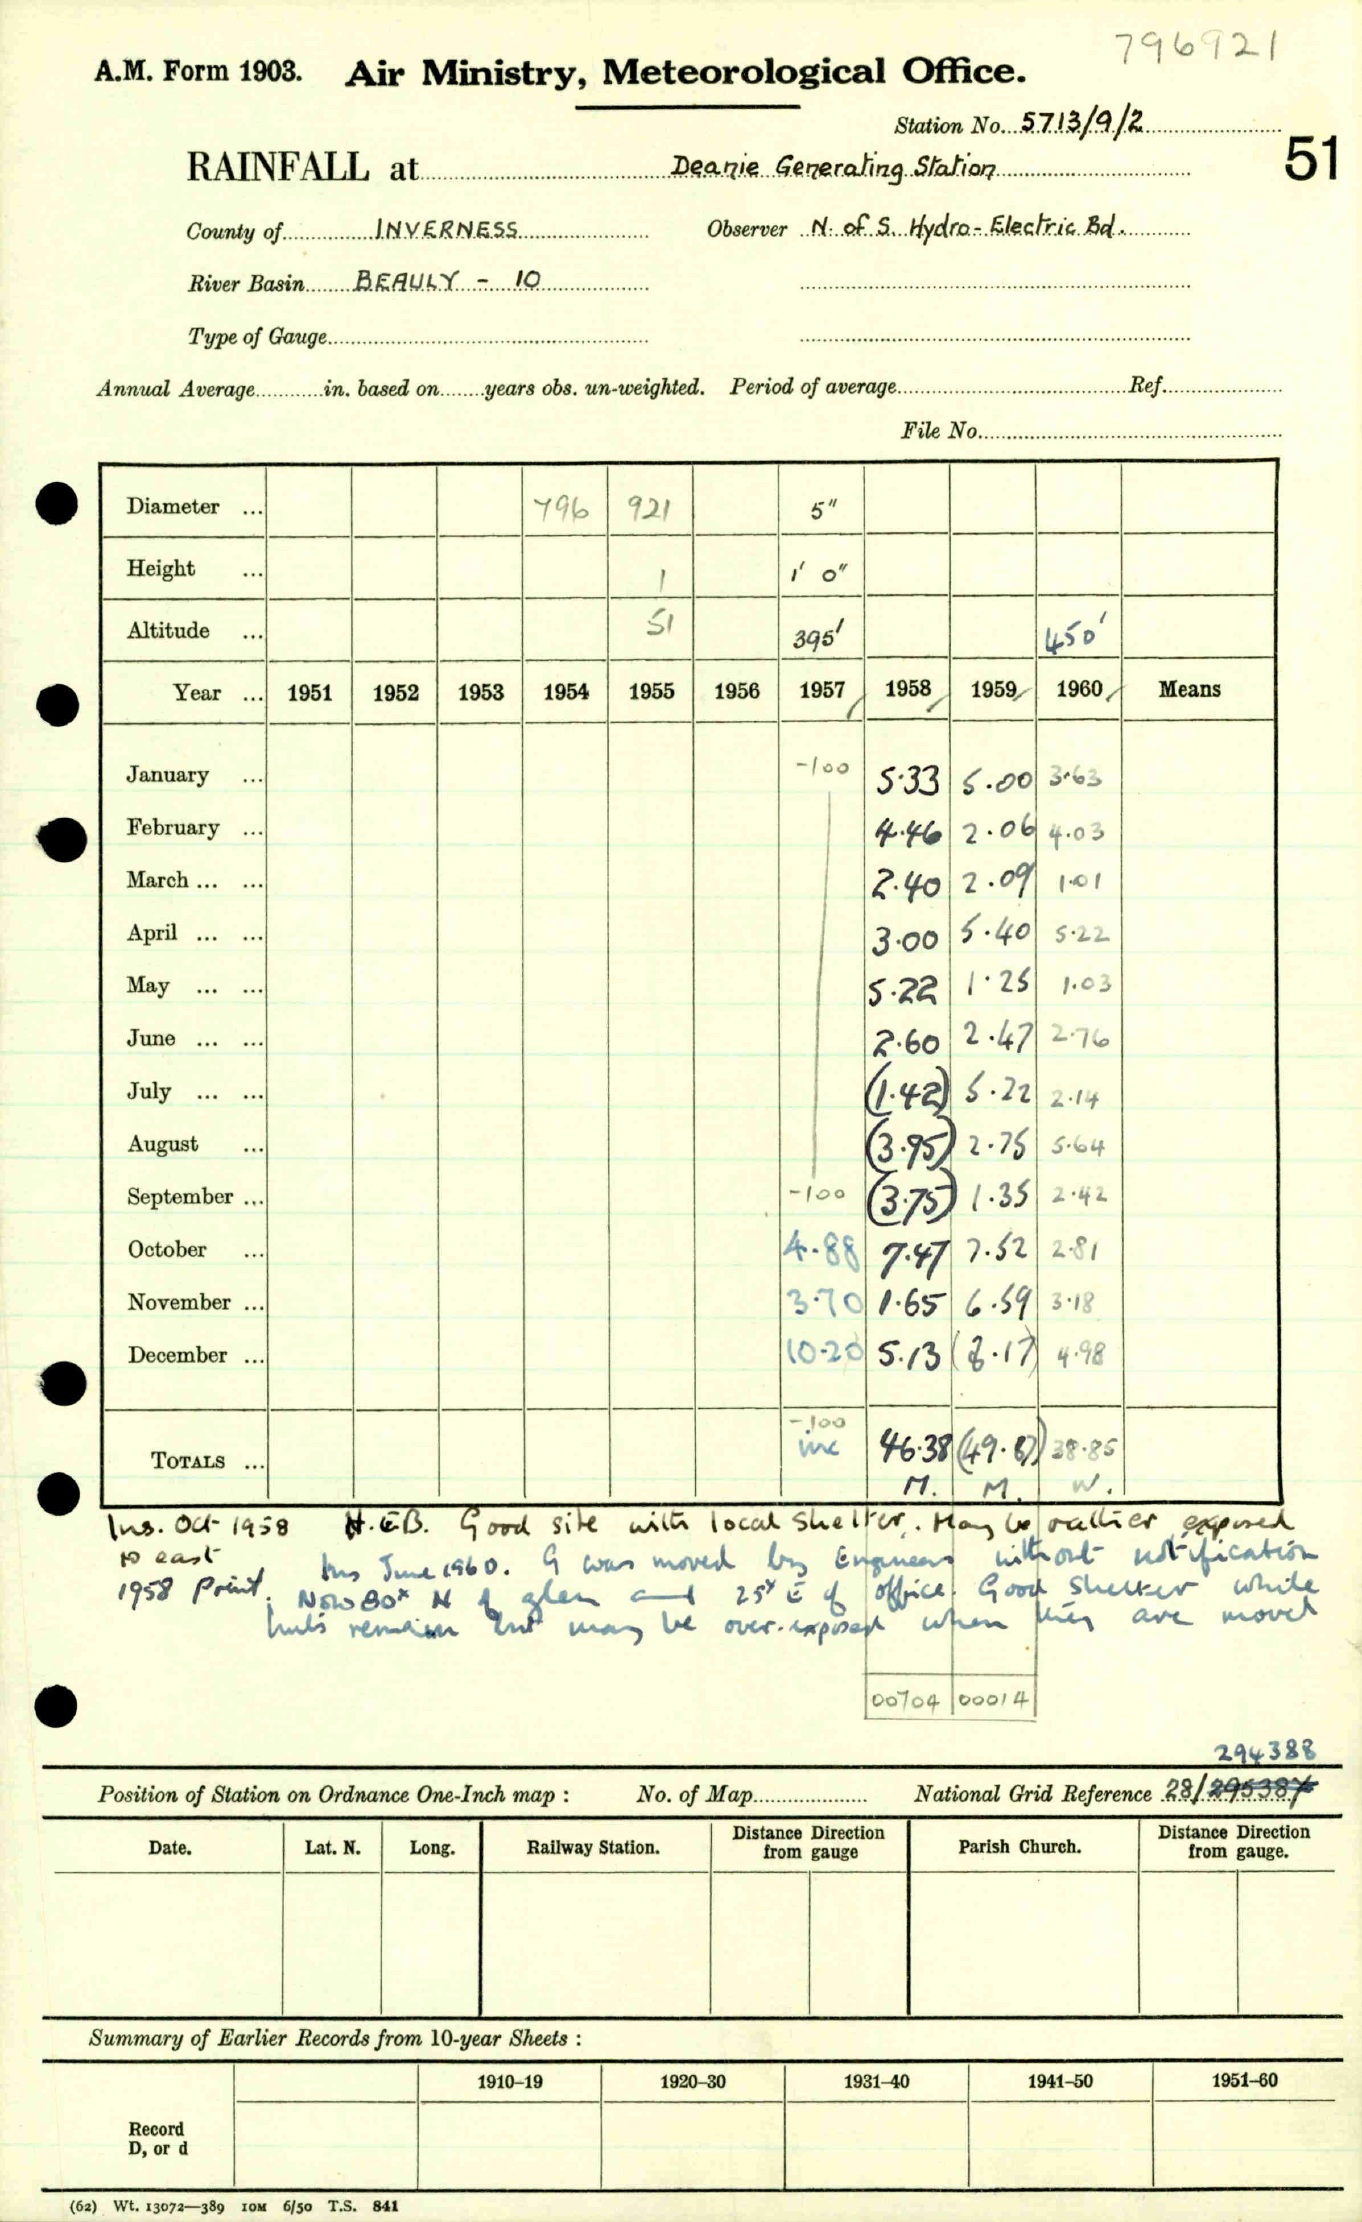 796921
A.M. Form 1903. Air Ministry, Meteorological Office.
Station No. 5713/9/2
51
RAINFALL at Deanie Generating Station
County of INVERNESS Observer N. of S. Hydro-Electric Bd.
River Basin BEAULY - 10
Type of Gauge
Annual Average in. based on years obs. un-weighted. Period of average Ref.
File No.
Diameter ... 796 921 5"
Height ... 1 1' 0"
Altitude ... 51 395' 450'
Year ... 1951 1952 1953 1954 1955 1956 1957 1958 1959 1960 Means
January ... -100 5.33 5.00 3.63
February ... 4.46 2.06 4.03
March ... ... 2.40 2.09 1.01
April ... ... 3.00 5.40 5.22
May ... ... 5.22 1.25 1.03
June ... ... 2.60 2.47 2.76
July ... ... (1.42) 5.22 2.14
August ... (3.95) 2.75 5.64
September ... -100 (3.75) 1.35 2.42
October ... 4.88 7.47 7.52 2.81
November ... 3.70 1.65 6.59 3.18
December ... 10.20 5.13 (8.17) 4.98
-100
TOTALS ... inc 46.38 (49.87) 38.85
M. M. W.
Ins. Oct 1958 H.E.B. Good site with local shelter. May be rather exposed
to east
Ins June 1960. G was moved by Engineers without notification
1958 Print. Now 80x N of glen and 25x E of office. Good shelter while
huts remain but may be over-exposed when they are moved
00704 00014
294388
Position of Station on Ordnance One-Inch map : No. of Map National Grid Reference 28/295387
Date. Lat. N. Long. Railway Station. Distance Direction from gauge Parish Church. Distance Direction from gauge.
Summary of Earlier Records from 10-year Sheets :
1910–19 1920–30 1931–40 1941–50 1951–60
Record
D, or d
(62) Wt. 13072—389 10M 6/50 T.S. 841